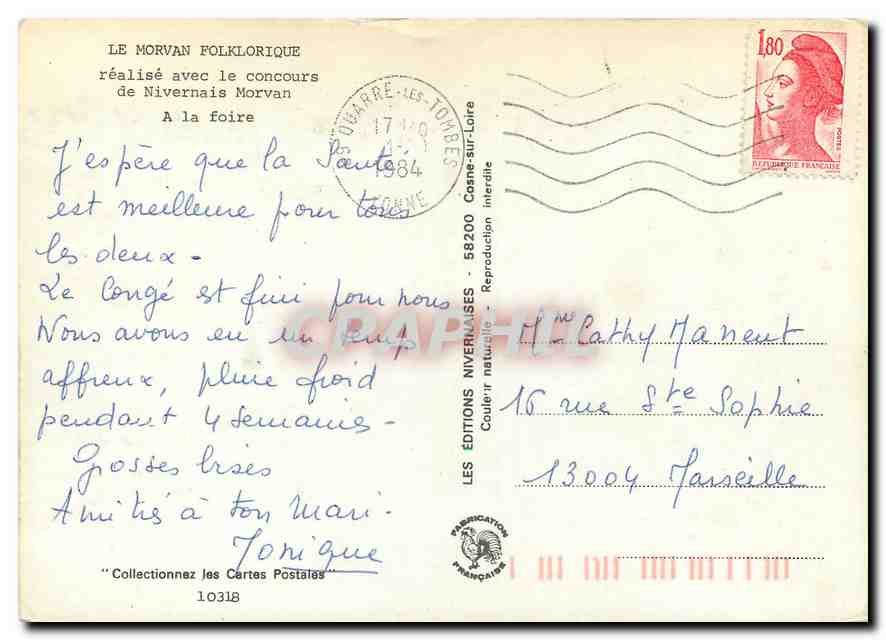 LE MORVAN FOLKLORIQUE
réalisé avec le concours
de Nivernais Morvan
A la foire
J'espère que la Santé
est meilleure pour tous
les deux -
Le Congé est fini pour nous
Nous avons eu un temps
affreux, pluie froid
pendant 4 semaines -
Grosses bises
Amitiés à ton Mari -
Monique
"Collectionnez les Cartes Postales"
10318
QUARRE-LES-TOMBES
17
1984
YONNE
1,80
POSTES
REPUBLIQUE FRANÇAISE
LES ÉDITIONS NIVERNAISES - 58200 Cosne-sur-Loire
Couleur naturelle - Reproduction interdite
CPAPHIL
Mme Cathy Manent
16 rue Ste Sophie
13004 Marseille
FABRICATION
FRANÇAISE